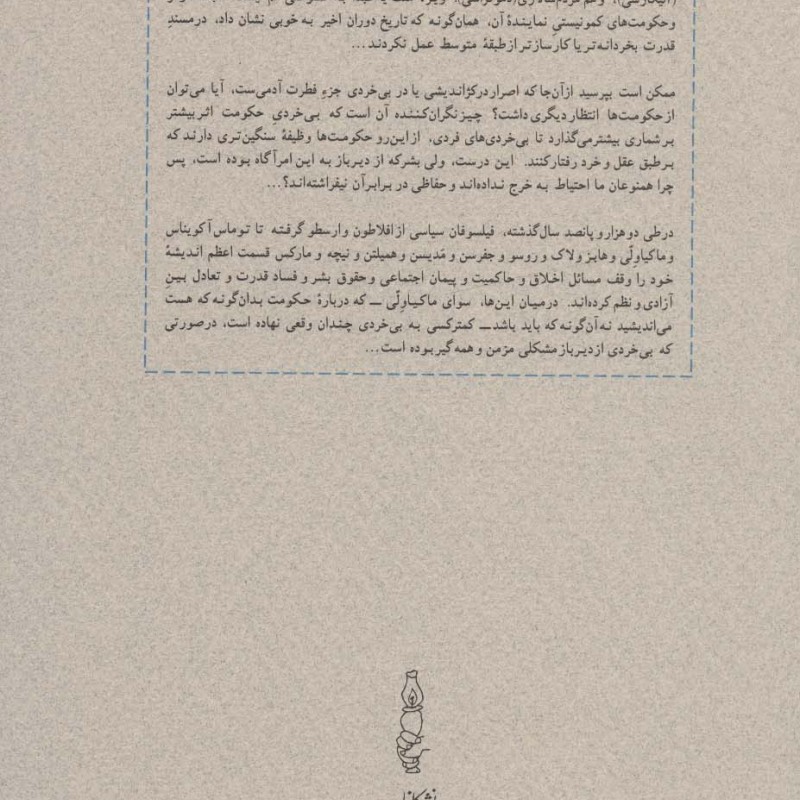 وحکومت‌های کمونیستیِ نمایندهٔ آن، همان‌گونه که تاریخ دوران اخیر به خوبی نشان داد، در مسندِ
قدرت بخردانه‌تر یا کارسازتر از طبقهٔ متوسط عمل نکردند...
ممکن است بپرسید از آن‌جا که اصرار در کژاندیشی یا در بی‌خردی جزءِ فطرت آدمی‌ست، آیا می‌توان
از حکومت‌ها انتظار دیگری داشت؟ چیز نگران‌کننده آن است که بی‌خردیِ حکومت اثر بیشتر
بر شماری بیشتر می‌گذارد تا بی‌خردی‌های فردی، از این‌رو حکومت‌ها وظیفهٔ سنگین‌تری دارند که
برطبق عقل و خرد رفتار کنند. این درست، ولی بشر که از دیرباز به این امر آگاه بوده است، پس
چرا همنوعان ما احتیاط به خرج نداده‌اند و حفاظی در برابر آن نیفراشته‌اند؟...
در طی دو هزار و پانصد سال گذشته، فیلسوفان سیاسی از افلاطون و ارسطو گرفته تا توماس آکویناس
و ماکیاولّی و هابز و لاک و روسو و جفرسن و مَدیسن و همیلتن و نیچه و مارکس قسمت اعظم اندیشهٔ
خود را وقف مسائل اخلاق و حاکمیت و پیمان اجتماعی و حقوق بشر و فساد قدرت و تعادل بینِ
آزادی و نظم کرده‌اند. در میان این‌ها، سوای ماکیاولّی — که دربارهٔ حکومت بدان‌گونه که هست
می‌اندیشید نه آن‌گونه که باید باشد — کمتر کسی به بی‌خردی چندان وقعی نهاده است، در صورتی
که بی‌خردی از دیرباز مشکلی مزمن و همه‌گیر بوده است...